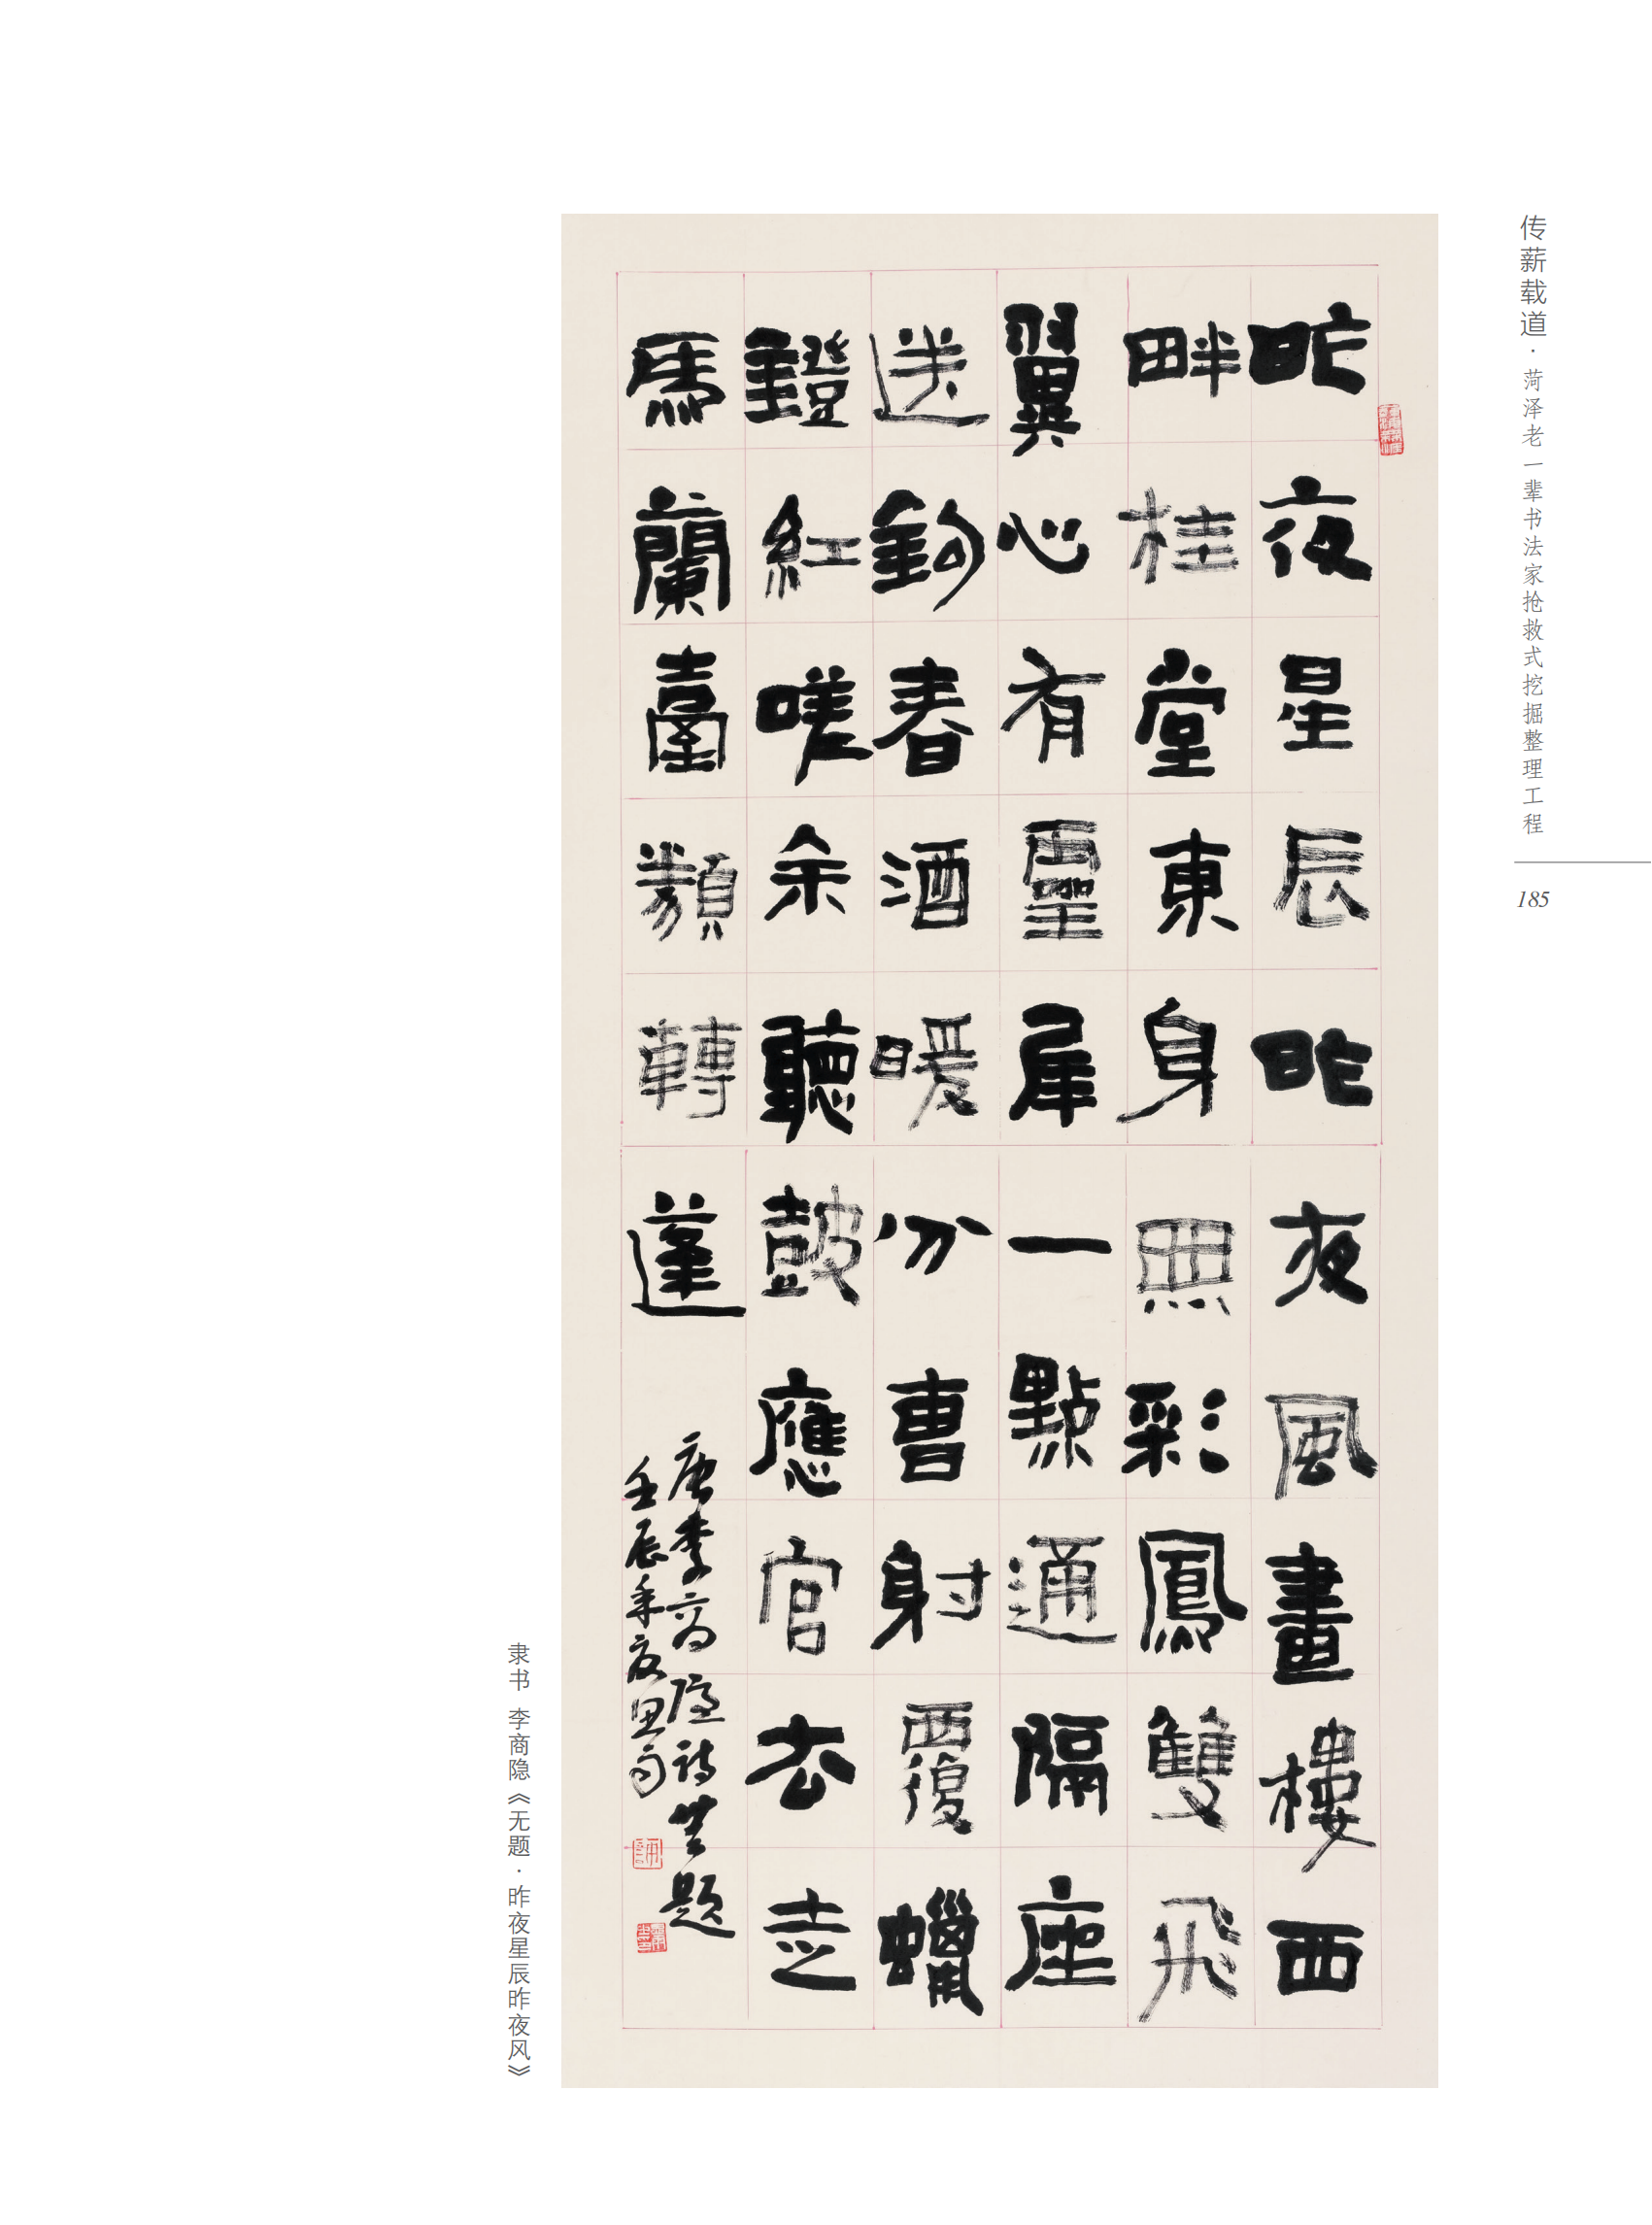 传薪载道·菏泽老一辈书法家抢救式挖掘整理工程
185
昨夜星辰昨夜風畫樓西
畔桂堂東身無彩鳳雙飛
翼心有靈犀一點通隔座
送鉤春酒暖分曹射覆蠟
鐙紅嗟余聽鼓應官去走
馬蘭臺類轉蓬
唐李商隱詩無題
壬辰年
隶书 李商隐《无题·昨夜星辰昨夜风》